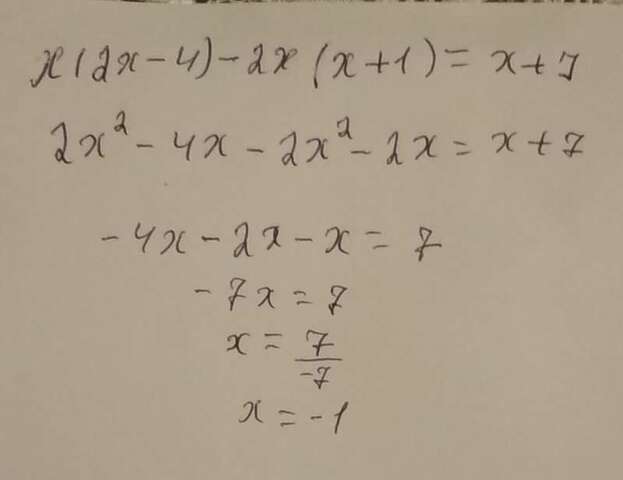 x(2x-4)-2x(x+1)=x+7
2x²-4x-2x²-2x=x+7
-4x-2x-x=7
-7x=7
x=7/-7
x=-1